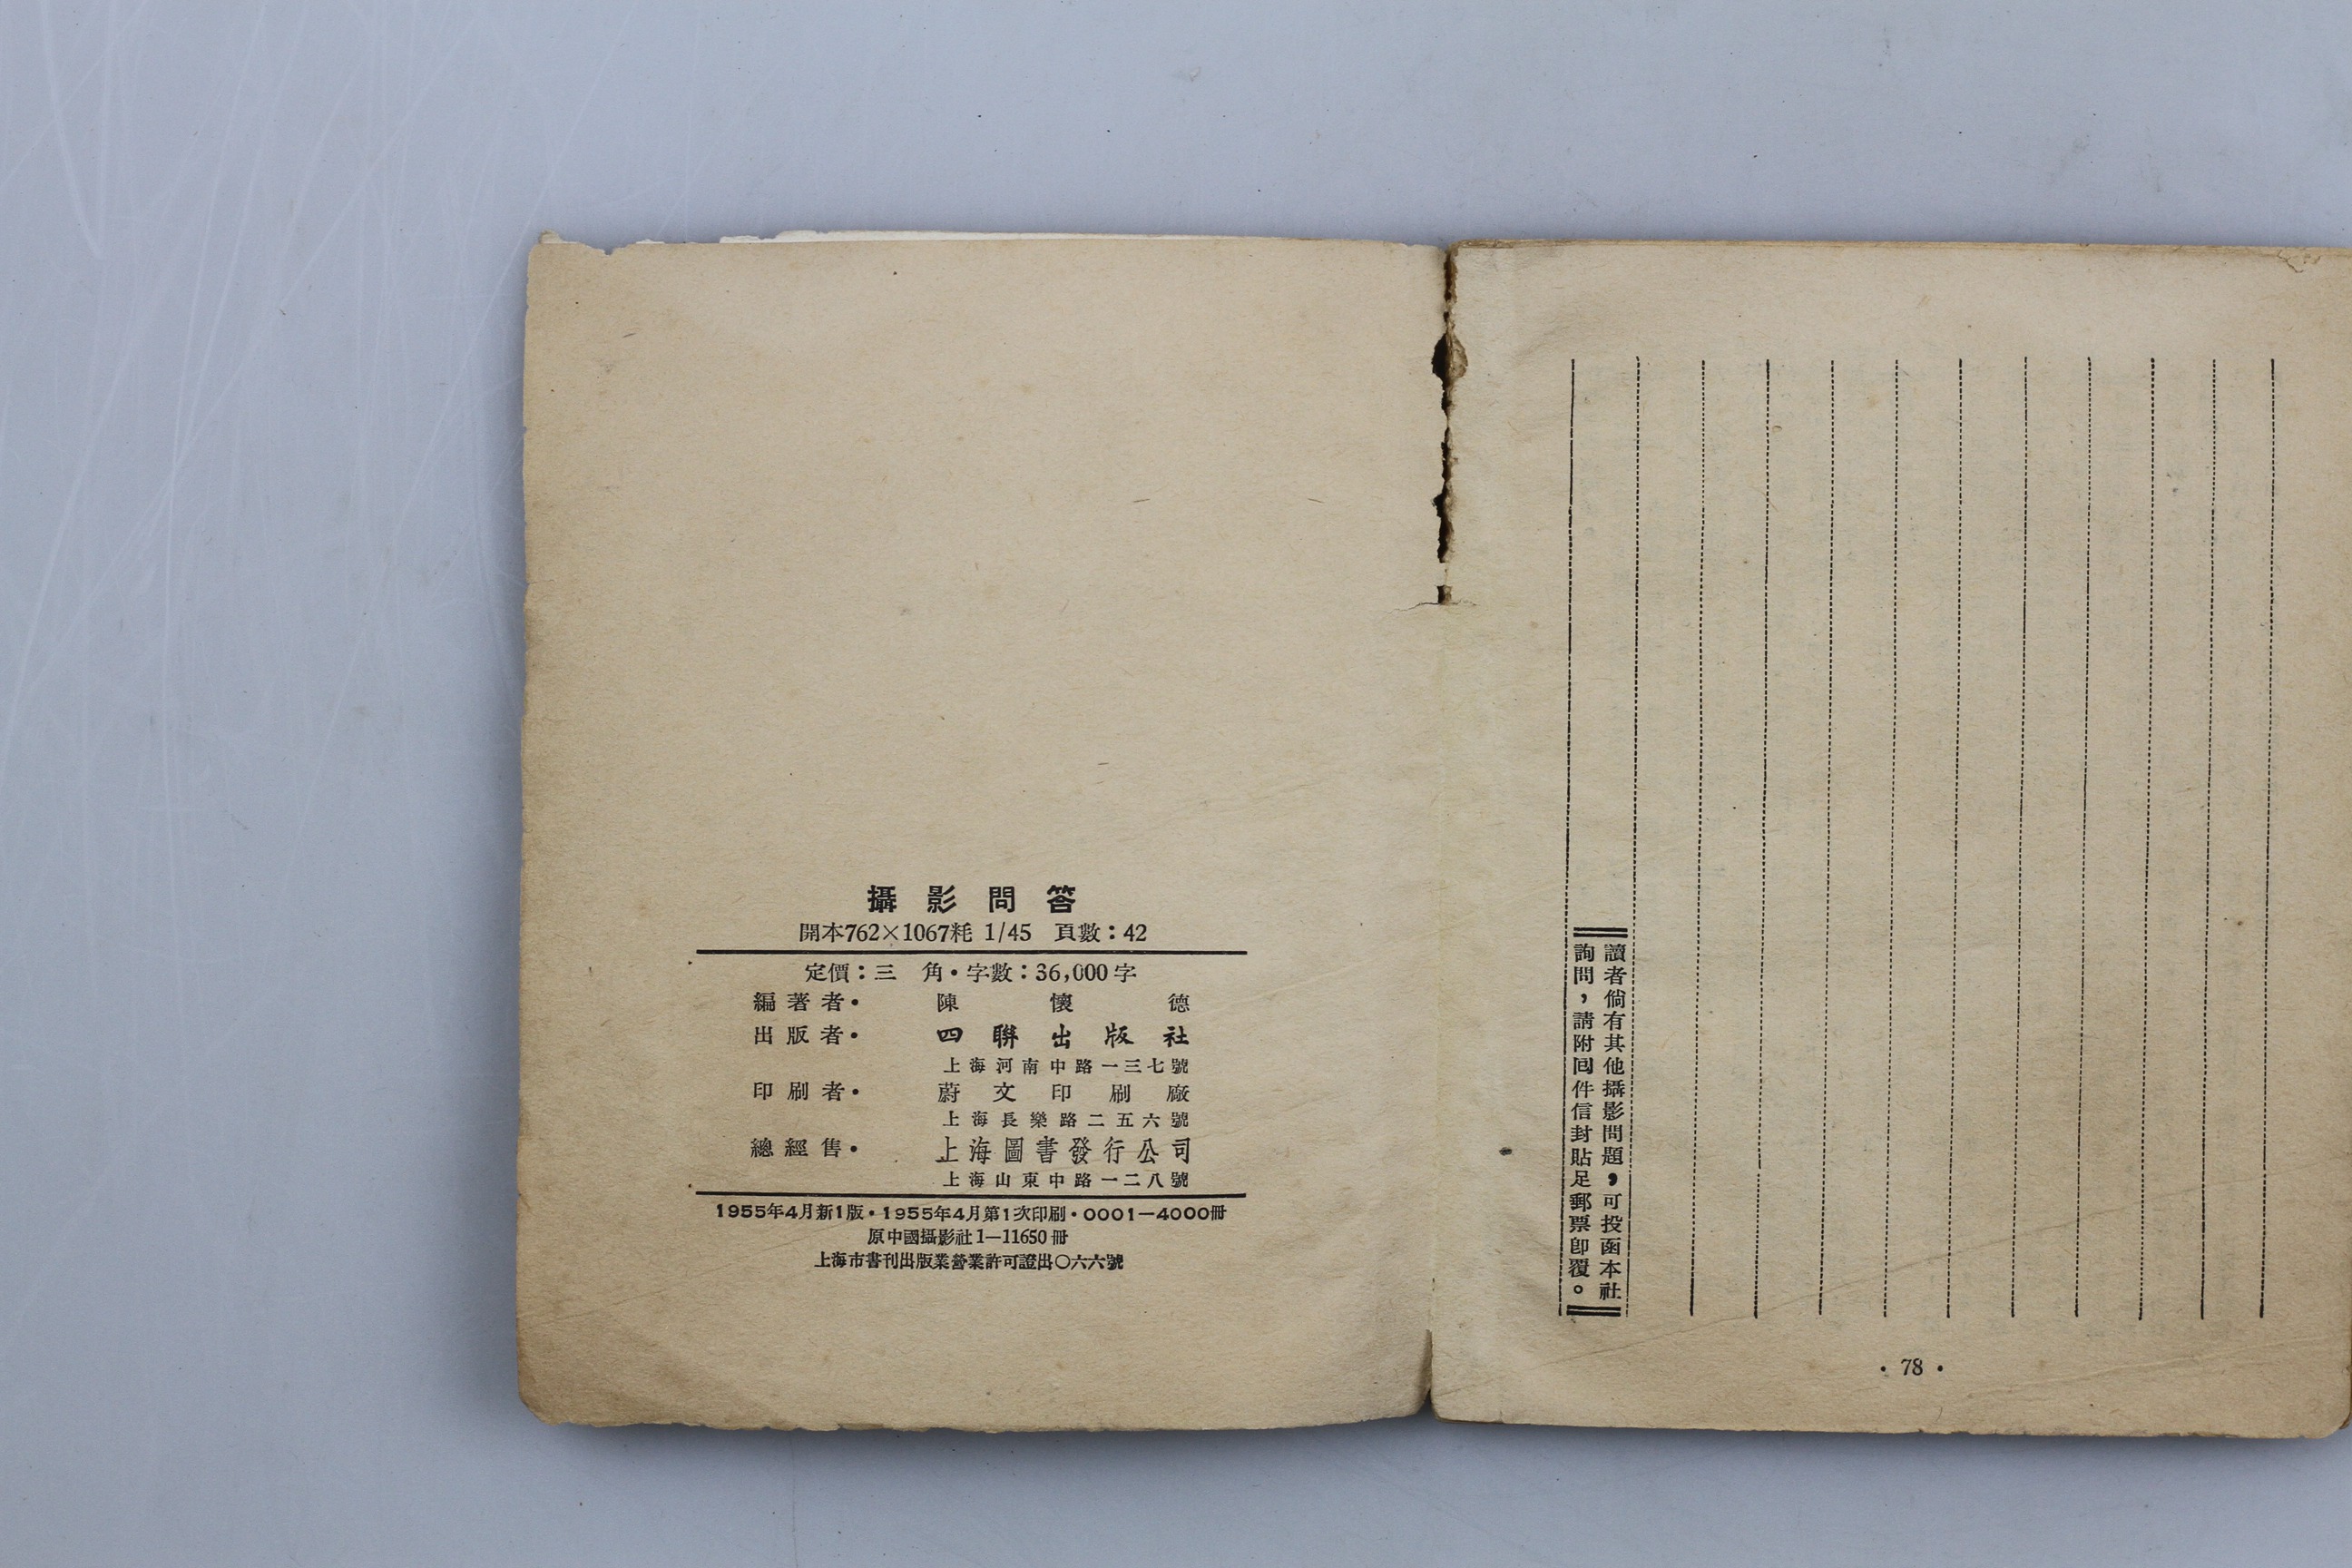 攝影問答
開本762×1067粍 1/45 頁數：42
定價：三 角·字數：36,000字
編著者· 陳懷德
出版者· 四聯出版社
上海河南中路一三七號
印刷者· 蔚文印刷廠
上海長樂路二五六號
總經售· 上海圖書發行公司
上海山東中路一二八號
1955年4月新1版·1955年4月第1次印刷·0001—4000冊
原中國攝影社1—11650冊
上海市書刊出版業營業許可證出〇六六號
讀者倘有其他攝影問題，可投函本社
詢問，請附囘件信封貼足郵票卽覆。
· 78 ·